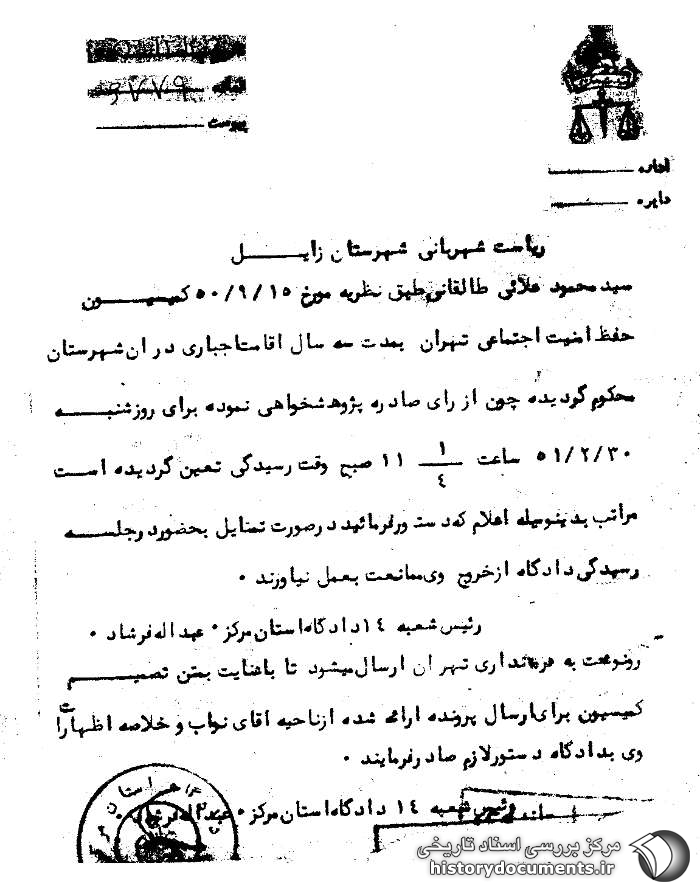 شماره ۳۷۷۹
پیوست
اداره
دایره
ریاست شهربانی شهرستان زابــــل
سید محمود علائی طالقانی طبق نظریه مورخ ۵۰/۹/۱۵ کمیسیــــون
حفظ امنیت اجتماعی تهران بمدت سه سال اقامت اجباری در ان شهرستان
محکوم گردیده چون از رای صادره پژوهشخواهی نموده برای روز شنبــــه
۵۱/۲/۳۰ ساعت ۱/۴ ۱۱ صبح وقت رسیدگی تعین گردیده است
مراتب بدینوسیله اعلام که دستور فرمائید در صورت تمایل بحضور در جلســـه
رسیدگی دادگاه از خروج وی ممانعت بعمل نیاورند ۰
رئیس شعبه ۱۴ دادگاه استان مرکز ۰ عبداله فرشاد ۰
رونوشت به فرمانداری تهران ارسال میشود تا با عنایت بمتن تصمیــــم
کمیسیون برای ارسال پرونده ارائه شده از ناحیه آقای نواب و خلاصه اظهارات
وی بدادگاه دستور لازم صادر فرمایند ۰
رئیس شعبه ۱۴ دادگاه استان مرکز ۰ عبداله فرشاد ۰
استان
مرکز بررسی اسناد تاریخی
historydocuments.ir